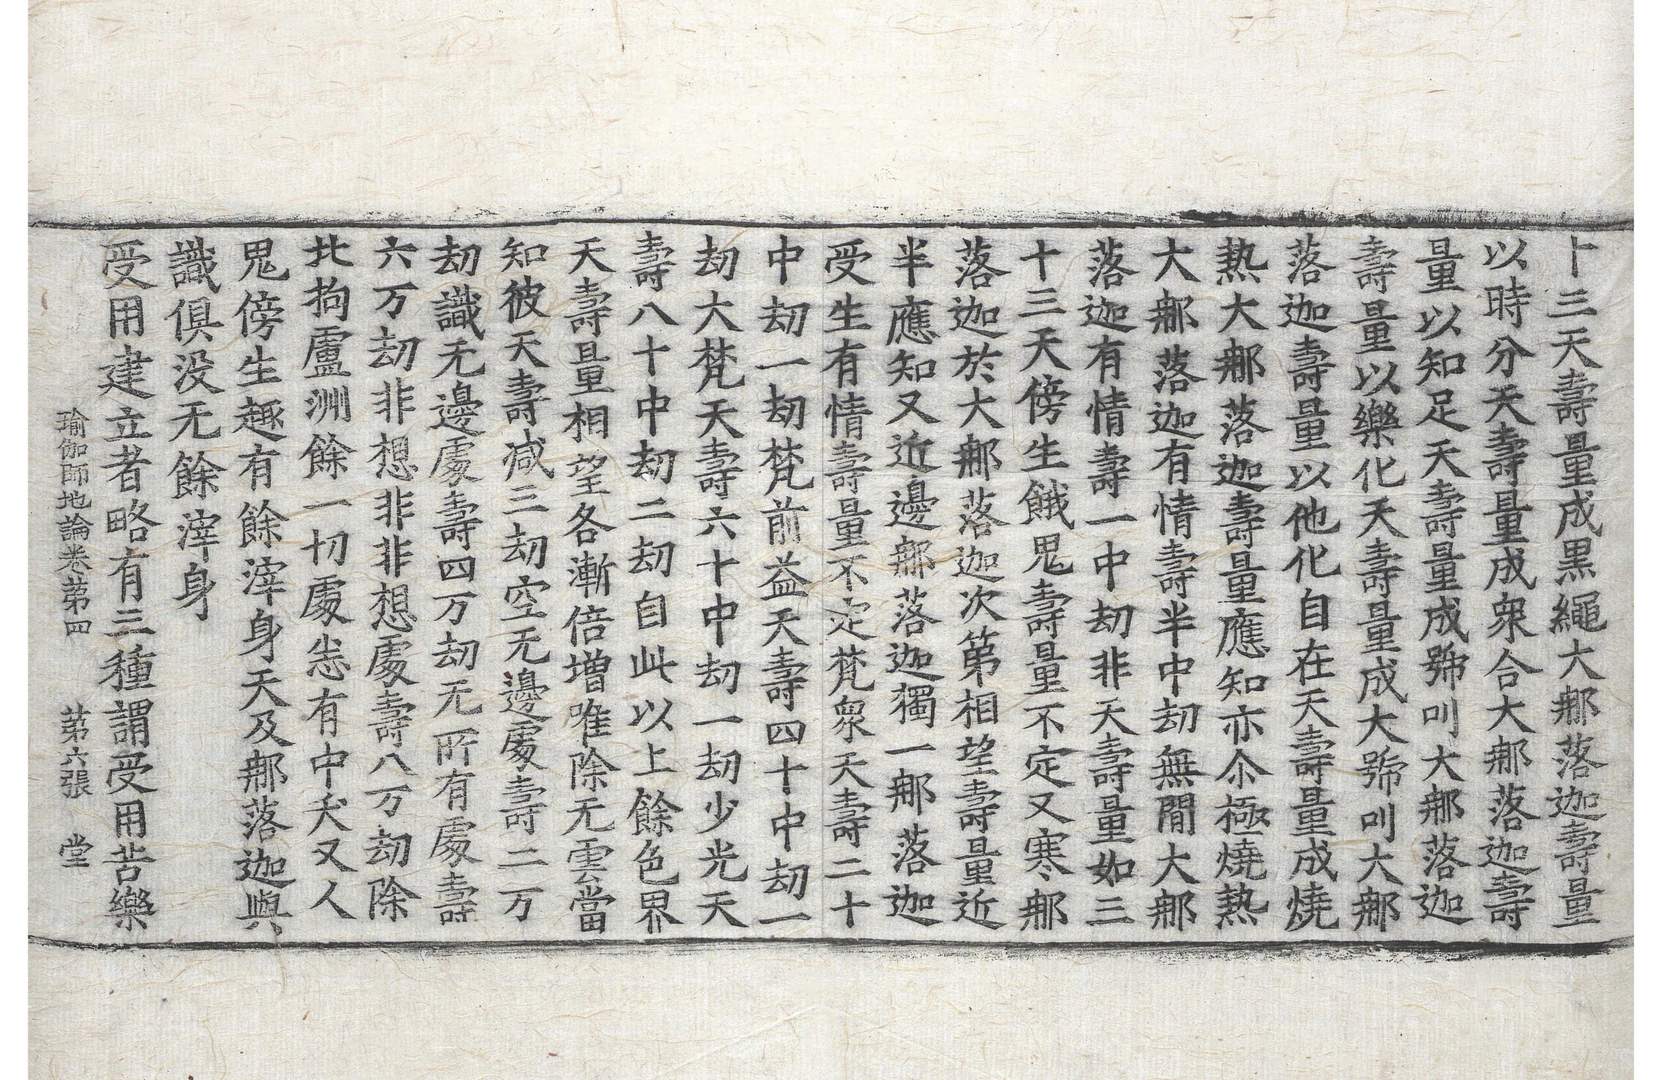 卜三天壽量成黑繩大郍落迦壽量
以時分天壽量成衆合大郍落迦壽
量以知足天壽量成號叫大郍落迦
壽量以樂化天壽量成大號叫大郍
落迦壽量以他化自在天壽量成燒
熱大郍落迦壽量應知亦尒極燒熱
大郍落迦有情壽半中劫無閒大郍
落迦有情壽一中劫非天壽量如三
十三天傍生餓鬼壽量不定又寒郍
落迦於大郍落迦次第相望壽量近
半應知又近邊郍落迦獨一郍落迦
受生有情壽量不定梵衆天壽二十
中劫一劫梵前益天壽四十中劫一
劫大梵天壽六十中劫一劫少光天
壽八十中劫二劫自此以上餘色界
天壽量相望各漸倍增唯除无雲當
知彼天壽减三劫空无邊處壽二万
劫識无邊處壽四万劫无所有處壽
六万劫非想非非想處壽八万劫除
北拘盧洲餘一切處悉有中夭又人
鬼傍生趣有餘滓身天及郍落迦與
識俱没无餘滓身
受用建立者略有三種謂受用苦樂
瑜伽師地論卷苐四 苐六張 堂